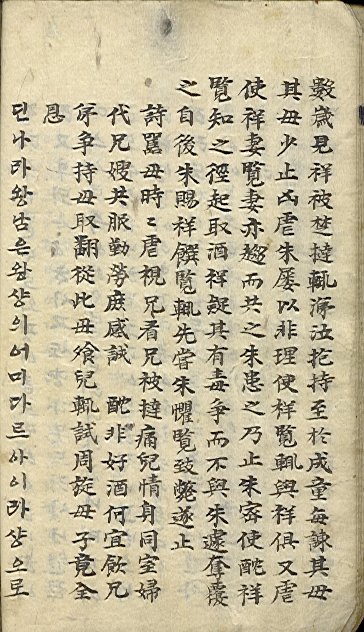 數歲見祥被楚撻輒涕泣抱持至於成童每諫其母
其母少止凶虐朱屢以非理使祥覽輒與祥俱又虐
使祥妻覽妻亦趨而共之朱患之乃止朱密使酖祥
覽知之徑起取酒祥疑其有毒爭而不與朱遽奪覆
之自後朱賜祥饌覽輒先嘗朱懼覽致斃遂止
詩罵母時〻虐視兄看兄被撻痛兒情身同室婦
代兄嫂共服勤勞庶感誠 酖非好酒何宜飮兄
弟爭持母取翻從此母飧兒輒試周旋母子竟全
恩
딘나라왕남은왕샹의어미다르아이라샹으로